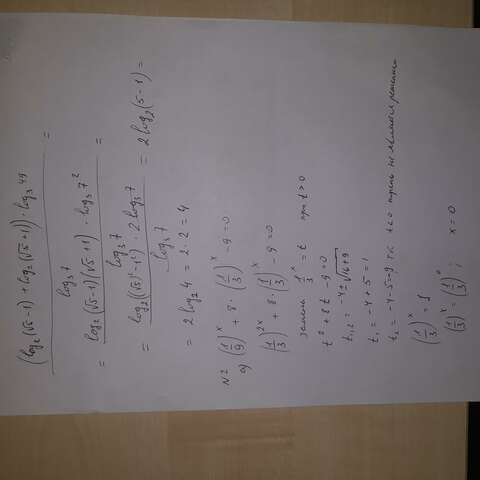 (log₂(√5-1) + log₂(√5+1)) · log₃49 / log₃7 =
= log₂(√5-1)(√5+1) · log₃7² / log₃7 =
= log₂((√5)²-1²) · 2log₃7 / log₃7 = 2log₂(5-1) =
= 2log₂4 = 2·2 = 4
N2
а) (1/9)ˣ + 8·(1/3)ˣ - 9 = 0
(1/3)²ˣ + 8·(1/3)ˣ - 9 = 0
замена 1/3ˣ = t при t>0
t² + 8t - 9 = 0
t₁,₂ = -4±√16+9
t₁ = -4+5 = 1
t₂ = -4-5=-9 т.к. t<0 корень не является решением
(1/3)ˣ = 1
(1/3)ˣ = (1/3)⁰ ; x = 0